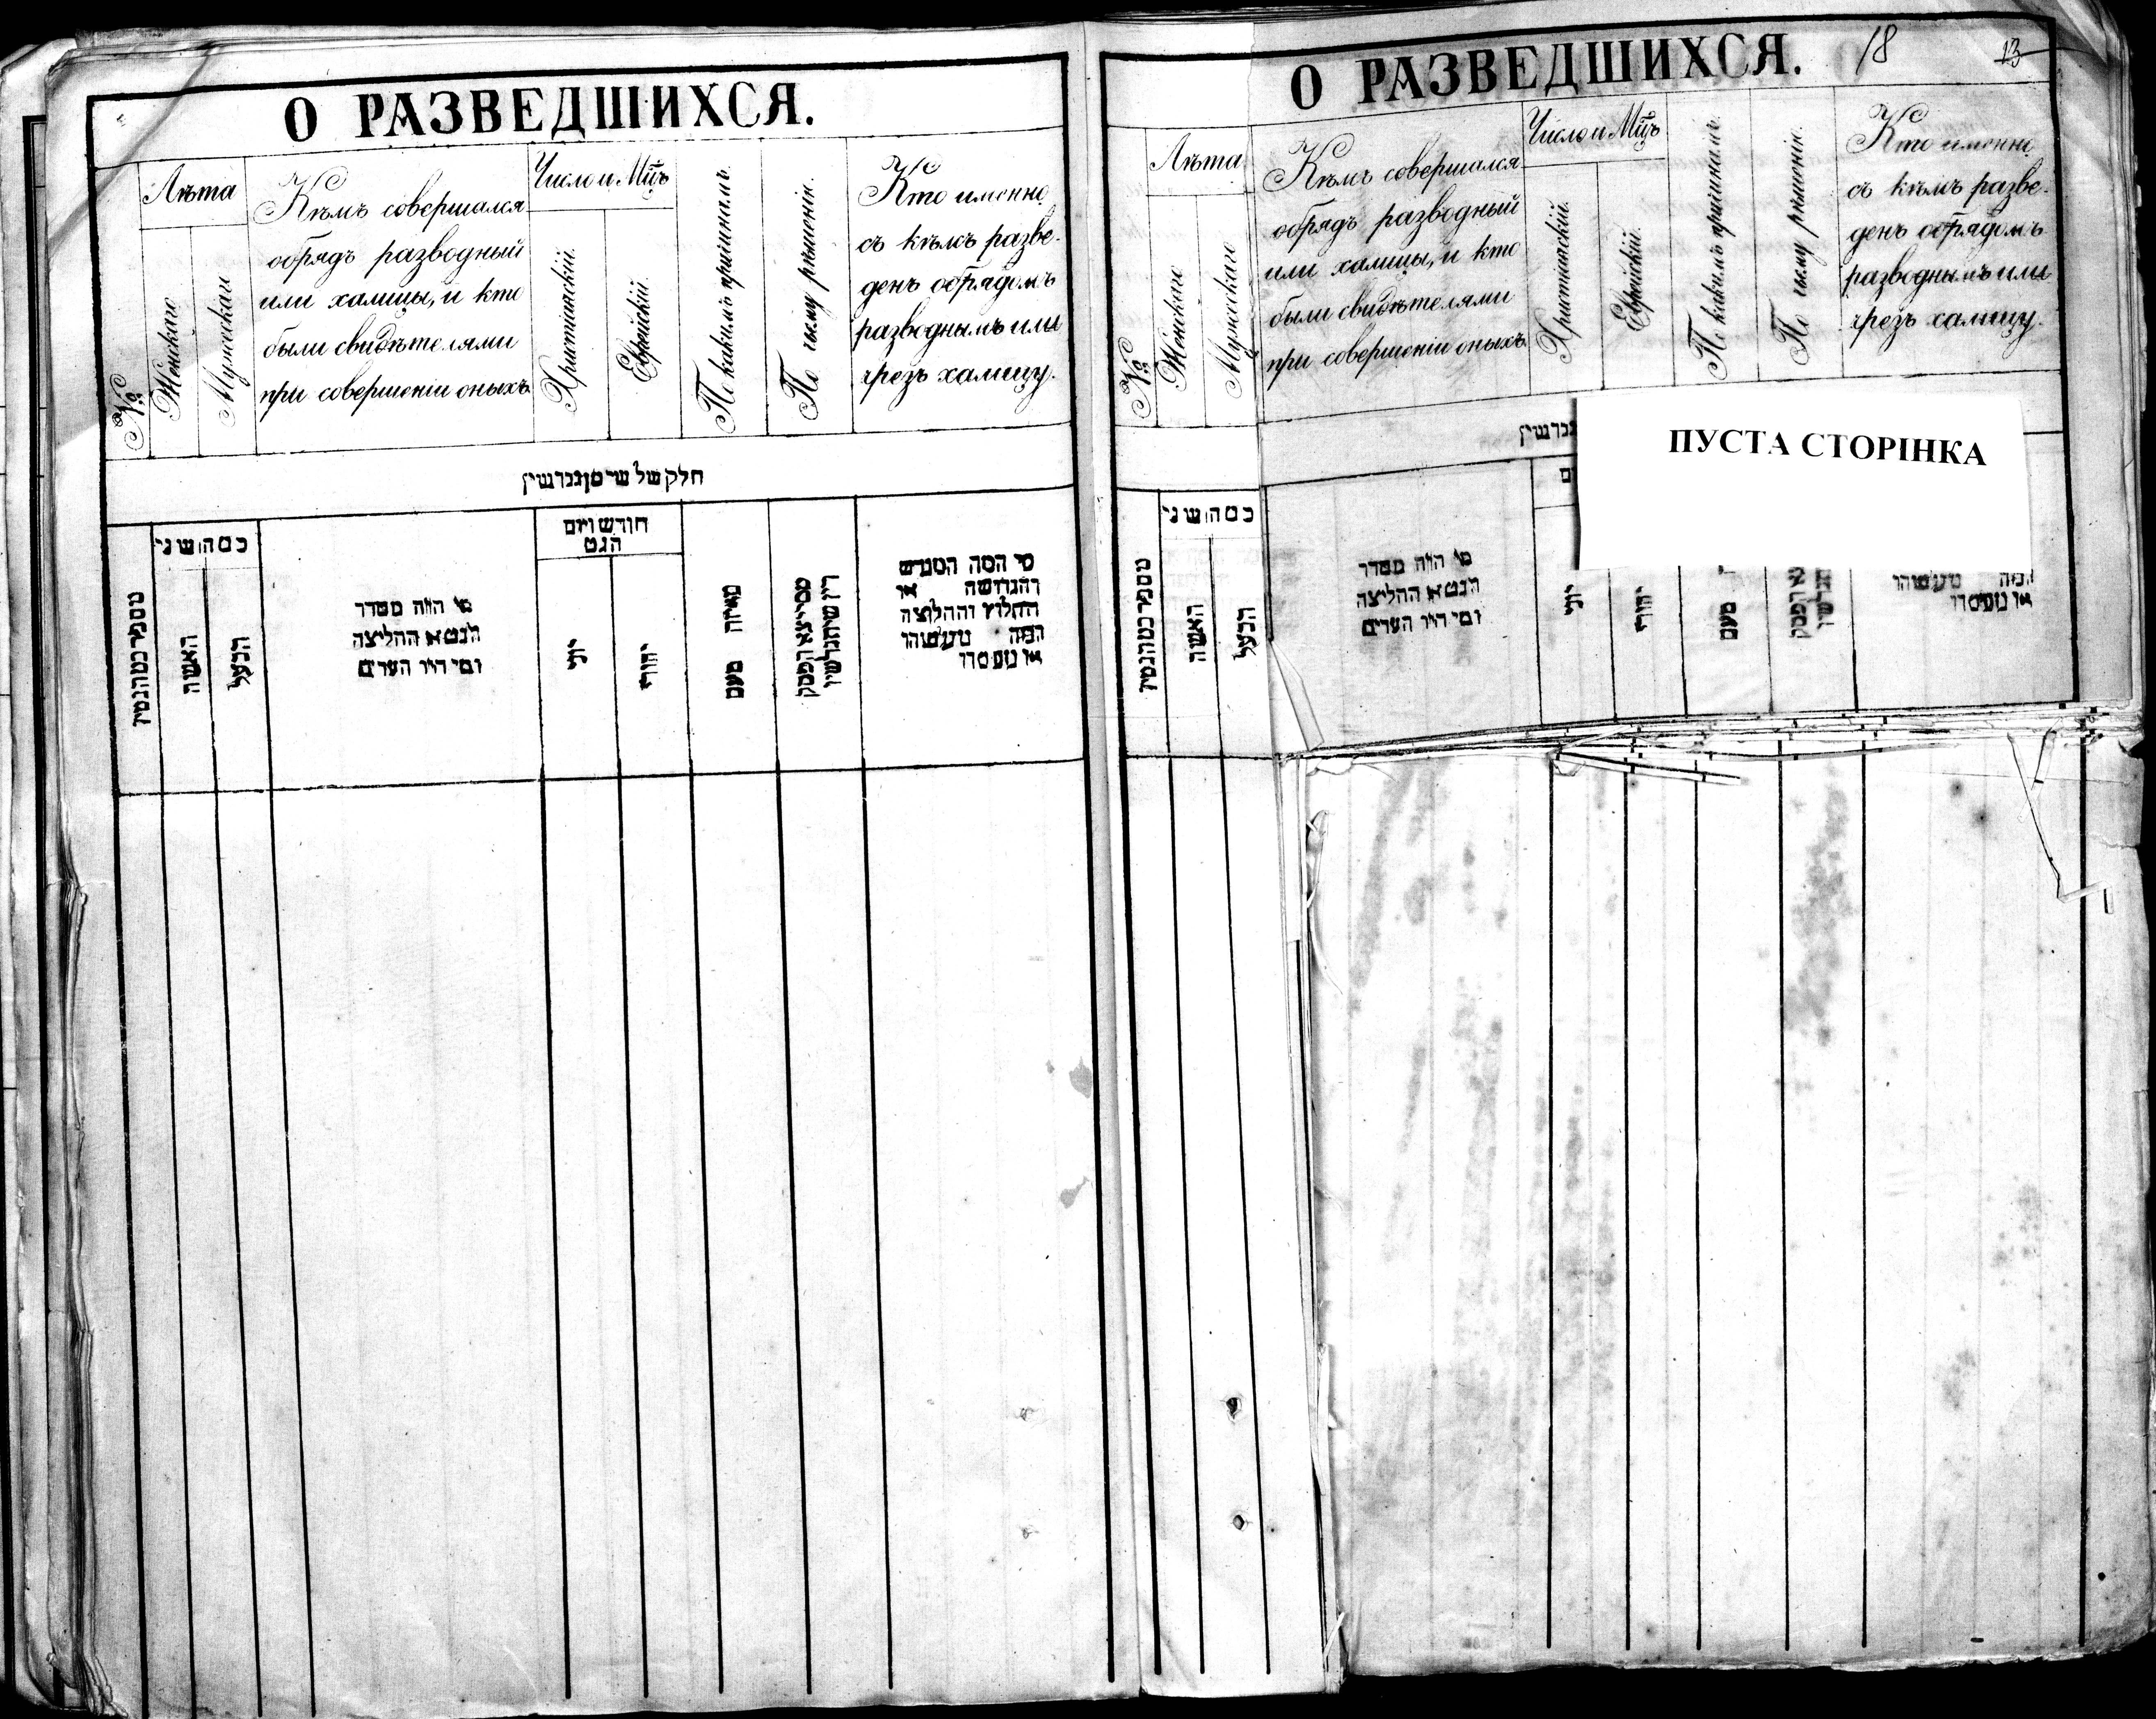 О РАЗВЕДШИХСЯ.
№
Лѣта
Женскаго
Мужескаго
Кѣмъ совершался
обрядъ разводный
или халицы, и кто
были свидѣтелями
при совершеніи оныхъ.
Число и Мцъ
Христіанскій.
Еврейскій.
По какимъ причинамъ.
По чьему рѣшенію.
Кто именно
съ кѣмъ разве-
денъ обрядомъ
разводнымъ или
чрезъ халицу.
חלק של שי מן גרושין
כמה שני
האשה
הבעל
מי היה מסדר
הגט או החליצה
ומי היו העדים
חודש ויום
הגט
יוני
יהודי
מאיזה טעם
מי המה המגרש
והגרושה או
החלוץ והחלוצה
המה
О РАЗВЕДШИХСЯ.
18
13
№
Лѣта
Женскаго
Мужескаго
Кѣмъ совершался
обрядъ разводный
или халицы, и кто
были свидѣтелями
при совершеніи оныхъ.
Число и Мцъ
Христіанскій.
Еврейскій.
По какимъ причинамъ.
По чьему рѣшенію.
Кто именно
съ кѣмъ разве-
денъ обрядомъ
разводнымъ или
чрезъ халицу.
ПУСТА СТОРІНКА
כמה שני
האשה
הבעל
מי היה מסדר
הגט או החליצה
ומי היו העדים
יוני
יהודי
טעם
המה